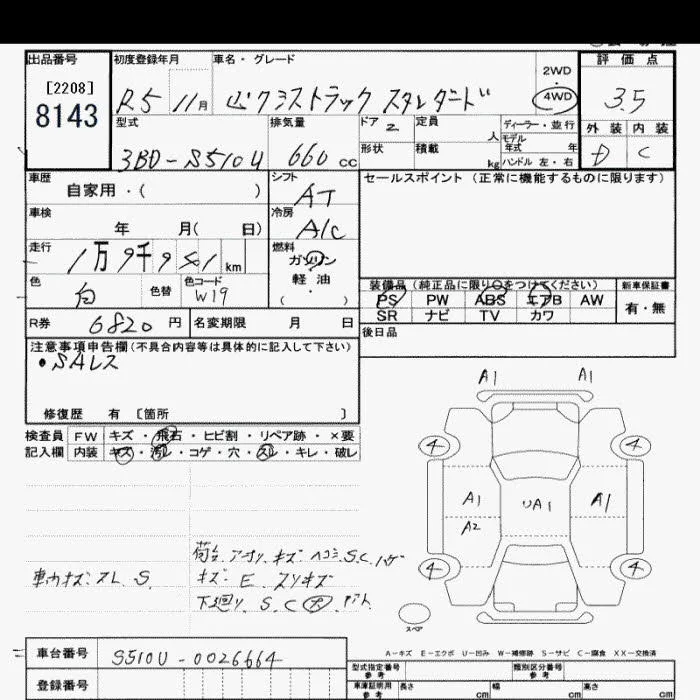 出品番号 初度登録年月 車名・グレード 評価点
[2208]
8143
R5 11月 ハイゼットトラック スタンダード
2WD
4WD
3.5
型式 排気量 ドア 2 定員 人 ディーラー・並行 外装 内装
モデル年式 年
3BD-S510U 660cc 形状 積載 kg ハンドル 左・右 D C
車歴 シフト セールスポイント(正常に機能するものに限ります)
自家用・( ) AT
車検 冷房
年 月( 日) A/C
走行 燃料
1万9千951km ガソリン
軽油
・( )
色 色替 色コード
白 W19
装備品(純正品に限り〇をつけてください) 新車保証書
PS PW ABS エアB AW 有・無
SR ナビ TV カワ
R券 6820円 名変期限 月 日 後日品
注意事項申告欄(不具合内容等は具体的に記入して下さい)
•SAレス
修復歴 有 [箇所 ]
検査員 FW キズ・飛石・ヒビ割・リペア跡・×要
記入欄 内装 キズ・汚レ・コゲ・穴・スレ・キレ・破レ
A1 A1
4 4
A1 UA1 A1
A2
4 4
スペア
荷台、アオリ、キズ ヘコミ S.C.ハゲ
車内キズ・スレ S. キズ・E スリキズ
下廻り、S.C
A-キズ E-エクボ U-凹み W-補修跡 S-サビ C-腐食 XX-交換済
車台番号 S510U-0026664
登録番号
型式指定番号 参考 類別区分番号 参考
車庫証明用 参考 長さ cm 幅 cm 高さ cm